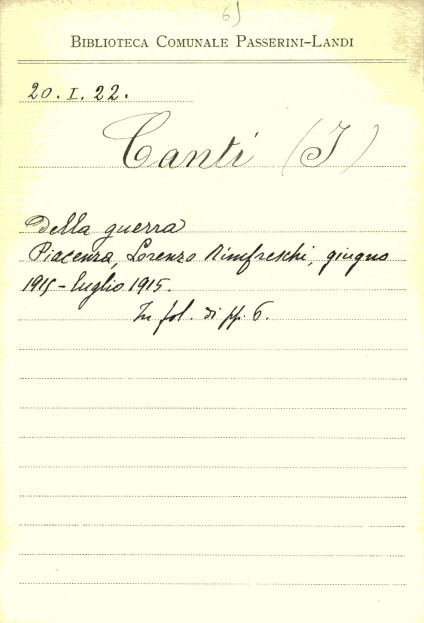 6)
BIBLIOTECA COMUNALE PASSERINI-LANDI
20. I. 22.
Canti (I)
Della guerra
Piacenza, Lorenzo Rinfreschi, giugno
1915 - luglio 1915.
In fol. di pp. 6.